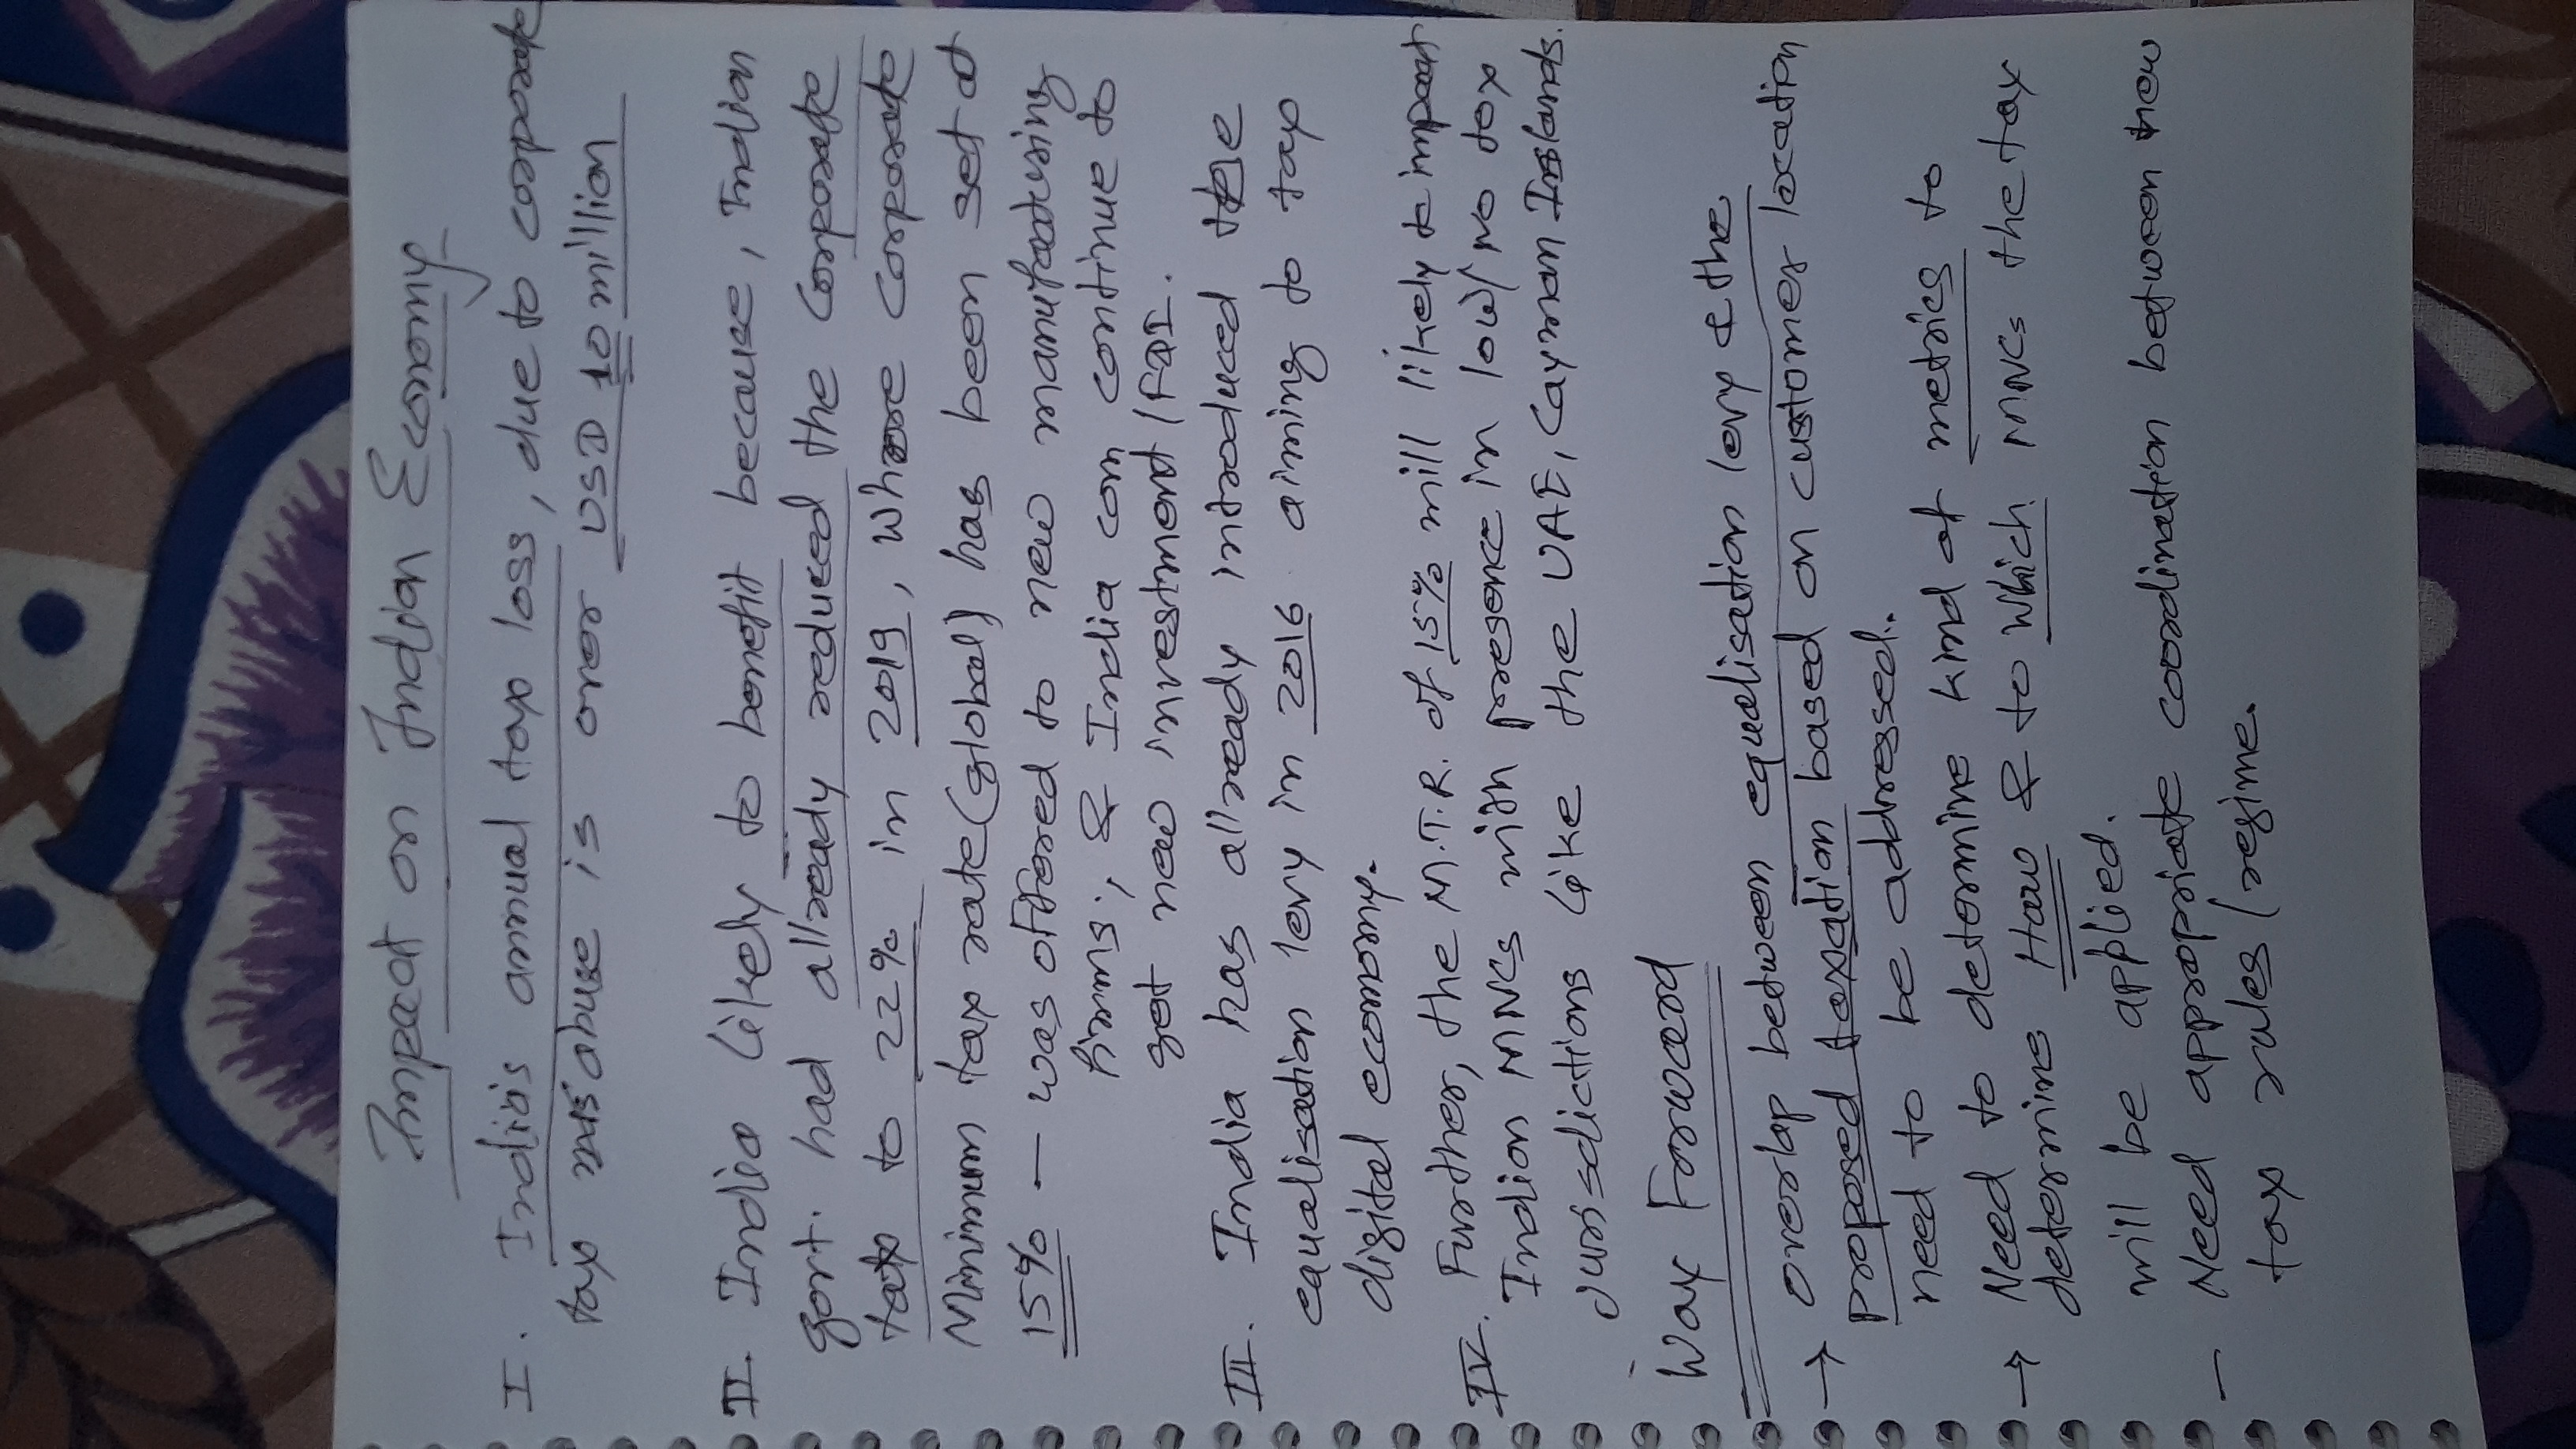 Impact on Indian Economy
I. India's annual tax loss, due to corporate
tax misabuse is over USD 10 million
II. India likely to benefit because, Indian
govt. had allready reduced the corporate
tax to 22% in 2019, where corporate
Minimum tax rate (global) has been set at
15% — was offered to new manufacturing
firms; & India can continue to
get new investment / FDI.
III. India has allready introduced the
equalisation levy in 2016 aiming to tap
digital economy.
IV. Further, the M.T.R. of 15% will likely to impact
Indian MNCs with presence in low/no tax
jurisdictions like the UAE, Cayman Inslands.
Way Forward
→ overlap between equalisation levy & the
proposed taxation based on customer location
need to be addressed.
→ Need to determine kind of metrics to
determine How & to which MNCs the tax
will be applied.
— Need appropriate coordination between new
tax rules / regime.